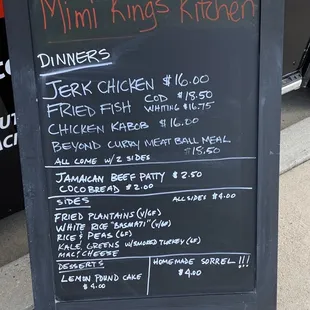 Mimi Kings Kitchen
DINNERS
JERK CHICKEN $16.00
FRIED FISH COD $18.50
WHITING $16.75
CHICKEN KABOB $16.00
BEYOND CURRY MEATBALL MEAL
$18.50
ALL COME W/2 SIDES
JAMAICAN BEEF PATTY $2.50
COCOBREAD $2.00
SIDES ALL SIDES $4.00
FRIED PLANTAINS (V/GF)
WHITE RICE "BASMATI" (V/GF)
RICE & PEAS (GF)
KALE, GREENS W/SMOKED TURKEY (GF)
MAC/CHEESE
DESSERTS
LEMON POUND CAKE
$4.00
HOMEMADE SORREL !!!
$4.00